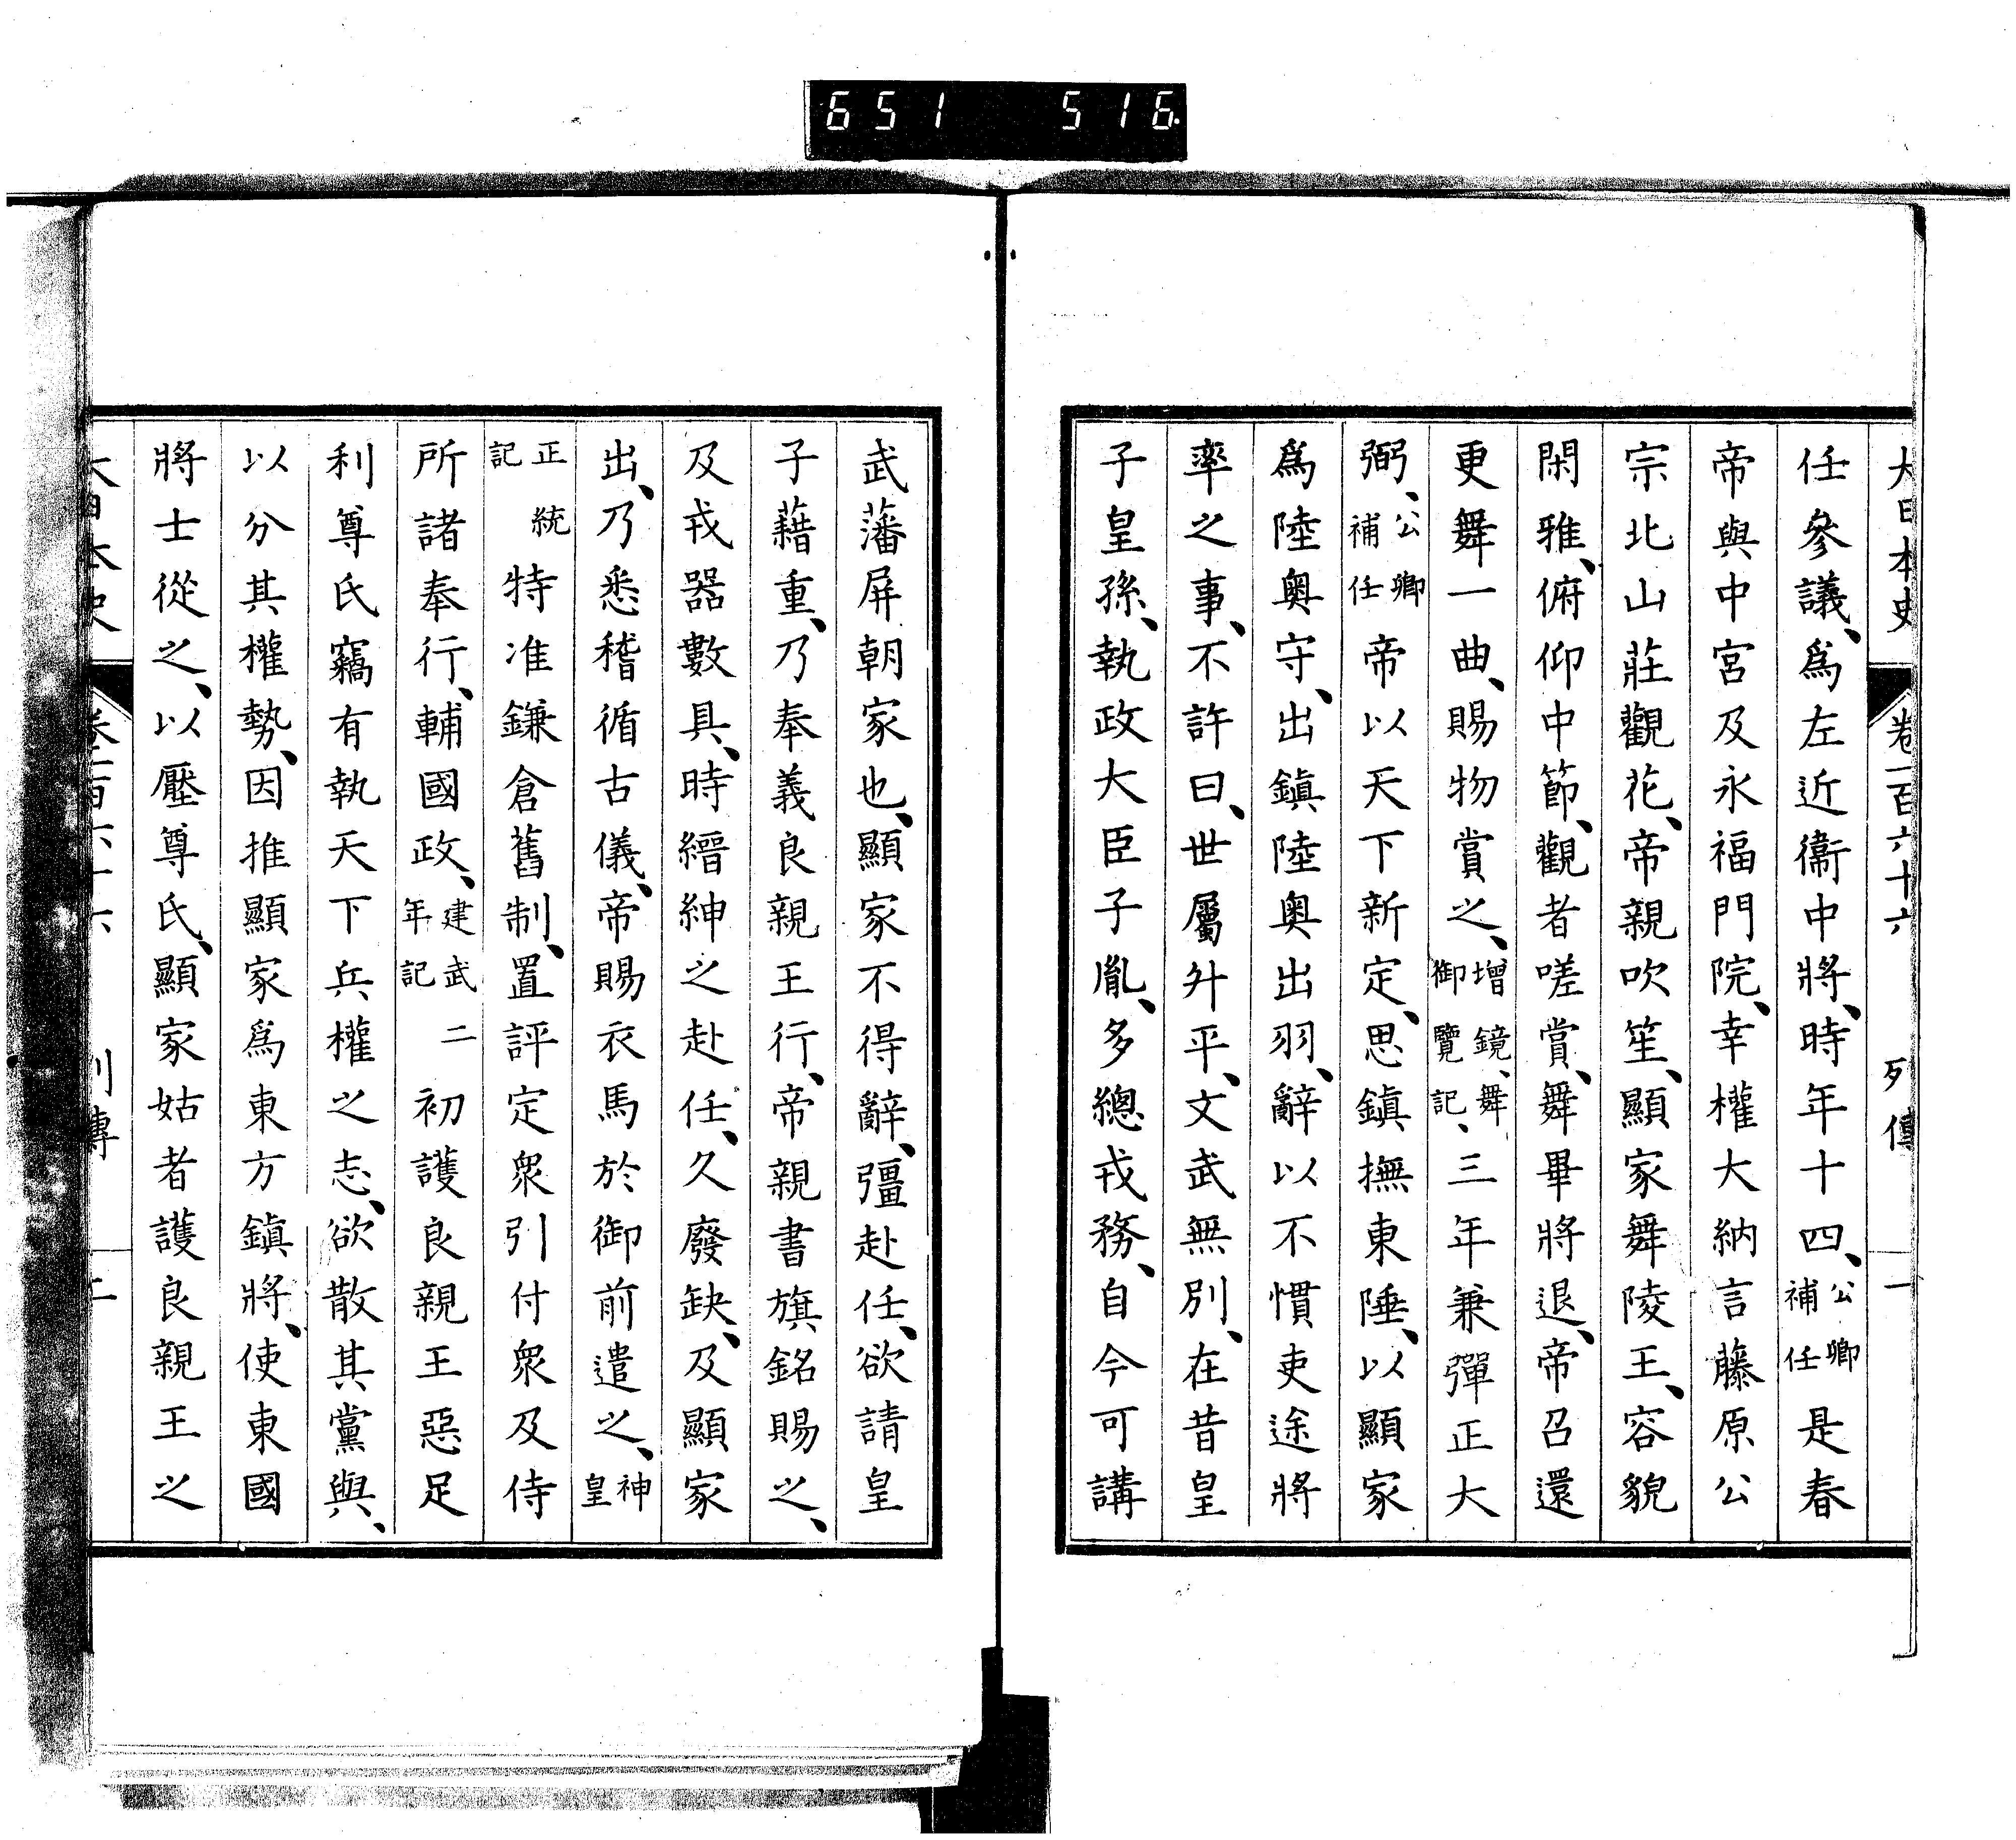 651 516
大日本史 卷一百六十六 列傳 一
任參議、爲左近衞中將、時年十四、公卿補任是春
帝與中宮及永福門院、幸權大納言藤原公
宗北山莊觀花、帝親吹笙、顯家舞陵王、容貌
閑雅、俯仰中節、觀者嗟賞、舞畢將退、帝召還
更舞一曲、賜物賞之、增鏡、舞御覽記、三年兼彈正大
弼、公卿補任帝以天下新定、思鎭撫東陲、以顯家
爲陸奧守、出鎭陸奧出羽、辭以不慣吏途將
率之事、不許曰、世屬升平、文武無別、在昔皇
子皇孫、執政大臣子胤、多總戎務、自今可講
武藩屏朝家也、顯家不得辭、彊赴任、欲請皇
子藉重、乃奉義良親王行、帝親書旗銘賜之、
及戎器數具、時縉紳之赴任、久廢缺、及顯家
出、乃悉稽循古儀、帝賜衣馬於御前遣之、神皇
正統記特准鎌倉舊制、置評定衆引付衆及侍
所諸奉行、輔國政、建武二年記初護良親王惡足
利尊氏竊有執天下兵權之志、欲散其黨與、
以分其權勢、因推顯家爲東方鎭將、使東國
將士從之、以壓尊氏、顯家姑者護良親王之
大日本史 卷一百六十六 列傳 二